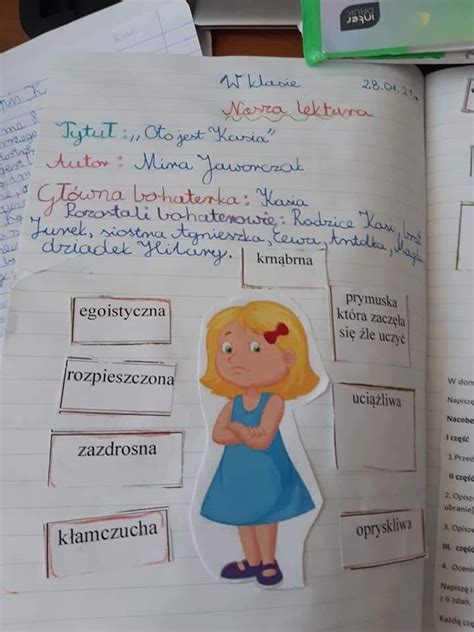 W klasie 28.01.21r.
Nowa lektura
Tytuł: „Oto jest Kasia"
Autor: Mira Jaworczak
Główna bohaterka: Kasia
Pozostali bohaterowie: Rodzice Kasi, brat
Jurek, siostna Agnieszka, Ewa, Antolka, Magda
dziadek Hilary.
krnąbrna
egoistyczna
prymuska
która zaczęła
się źle uczyć
rozpieszczona
uciążliwa
zazdrosna
kłamczucha
opryskliwa
inter
DRUK
W dom
Napisz
Nacobe
I część
1.Przed
II część
2. Opisz
ubranie
3. Opisz
III. część
4. Oceni
Napisz i
z 6 zdań.
Każdą czę